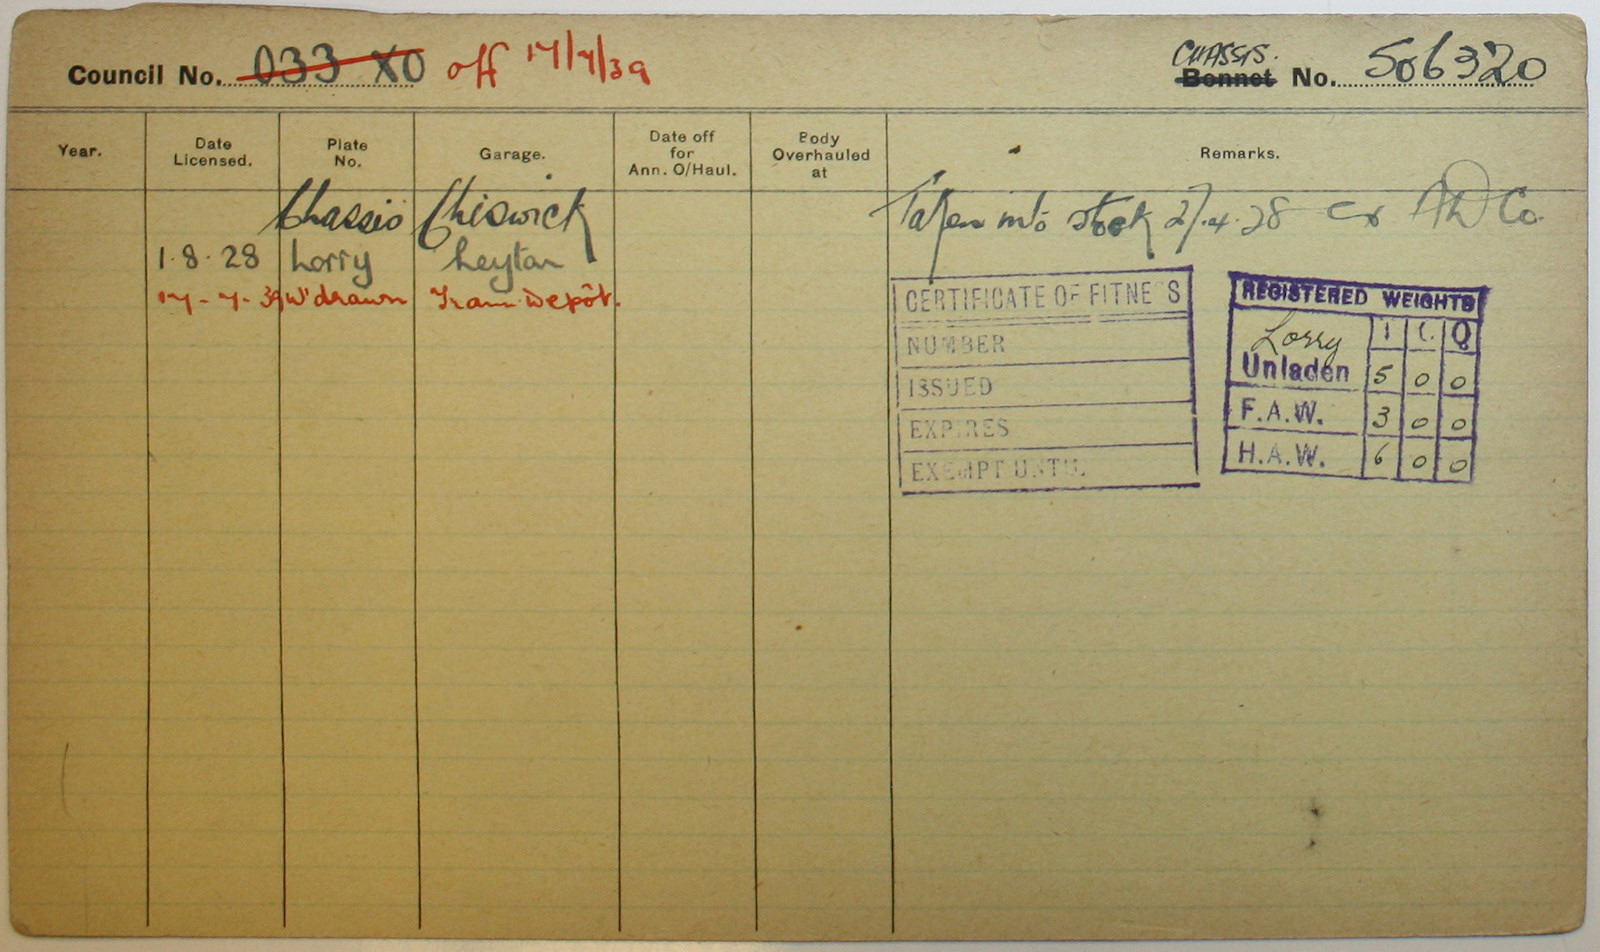 CHASSIS.
Council No. 033 XO off 17/7/39 Bonnet No. 506320
Year. Date Licensed. Plate No. Garage. Date off for Ann. O/Haul. Body Overhauled at Remarks.
Chassis Chiswick Taken into stock 27.4.28 ex AD Co.
1.8.28 Lorry Leyton
17-7-39 W'drawn Tram Depôt.
CERTIFICATE OF FITNESS
NUMBER
ISSUED
EXPIRES
EXEMPT UNTIL
REGISTERED WEIGHTS
Lorry T C Q
Unladen 5 0 0
F.A.W. 3 0 0
H.A.W. 6 0 0